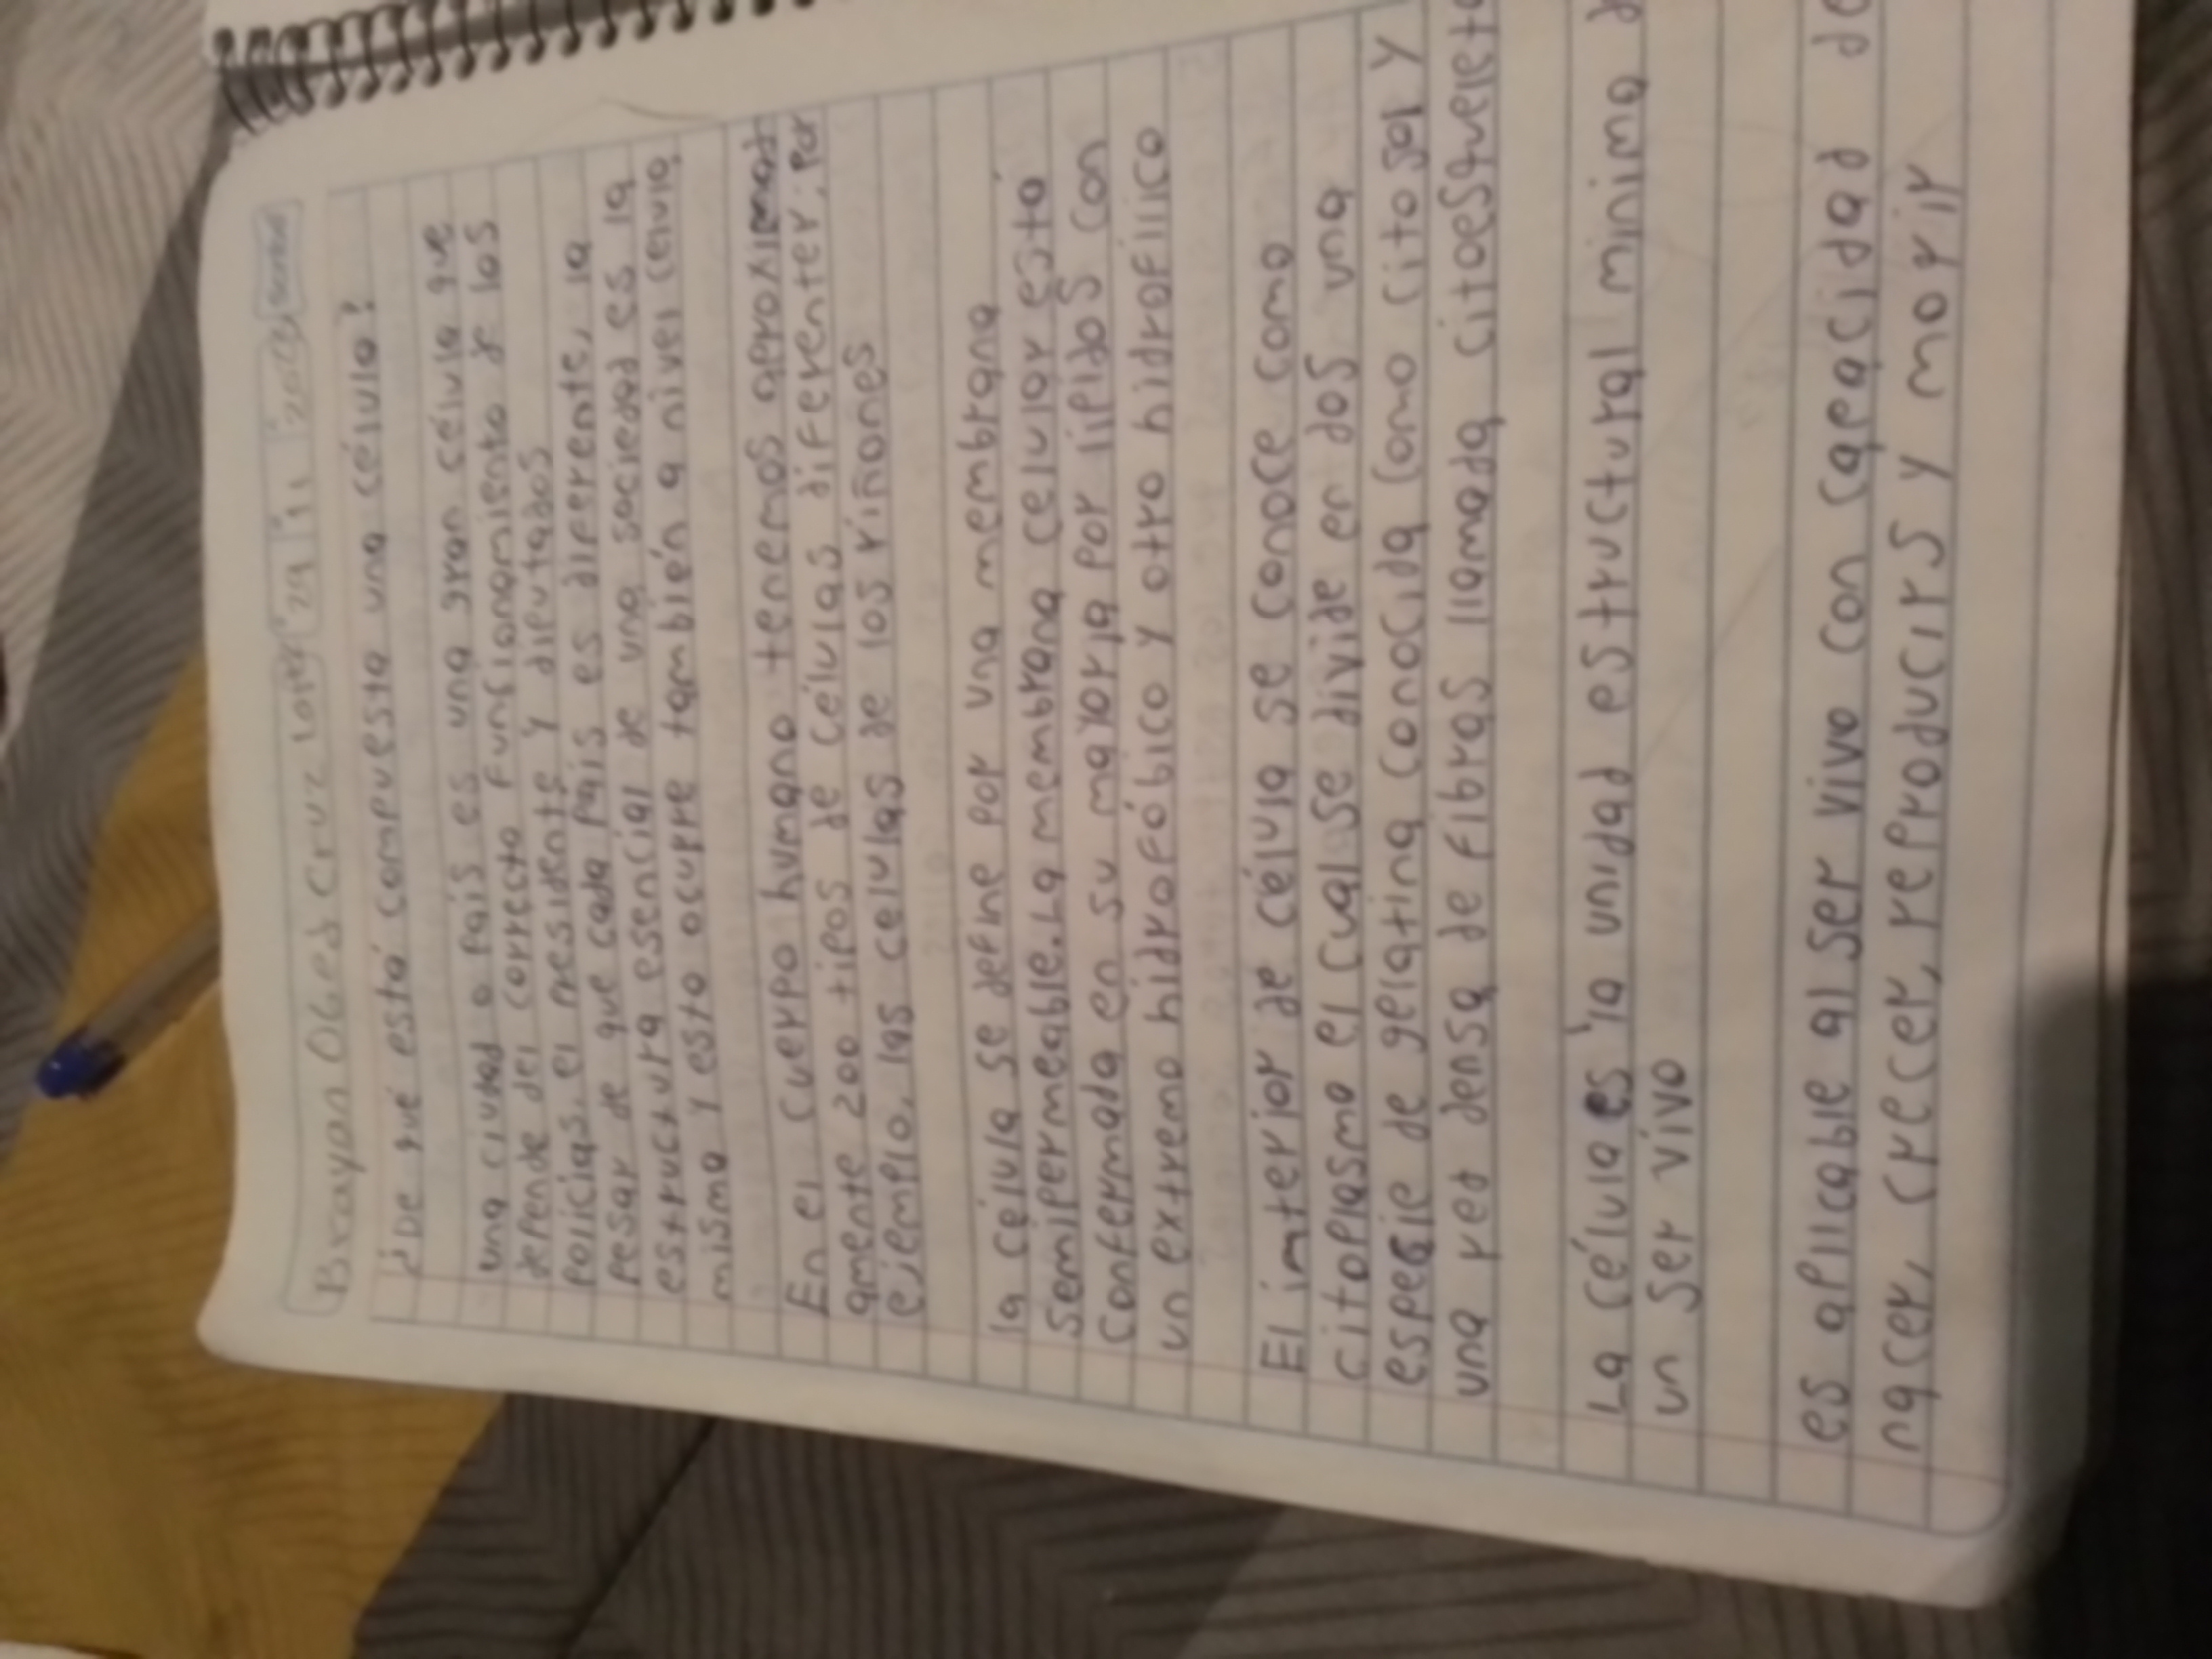 Brayan Oged Cruz Lopez
¿De qué está compuesta una célula?
una ciudad o país es una gran célula que
depende del correcto funsionamiento de los
policías, el presidente y diputados
pesar de que cada país es diferente, la
estructura esencial de una sociedad es la
misma y esto ocurre también a nivel celula
En el cuerpo humano tenemos aproximad
amente 200 tipos de células diferenter; por
ejemplo, las celulas de los riñones
la célula se define por una membrana
semipermeable. La membrana celular está
Confermada en su mayoria por lipidos con
un extremo hidrofóbico y otro hidrofilico
El imterior de célula se conoce como
citoplasmo el cual se divide en dos una
especie de gelatina conocida como citosol y
una red densa de fibras llamada citoesquelet
La célula es la unidad estructural minima d
un ser vivo
es aplicable al ser vivo con capacidad de
nacer, crecer, reproducirs y morir